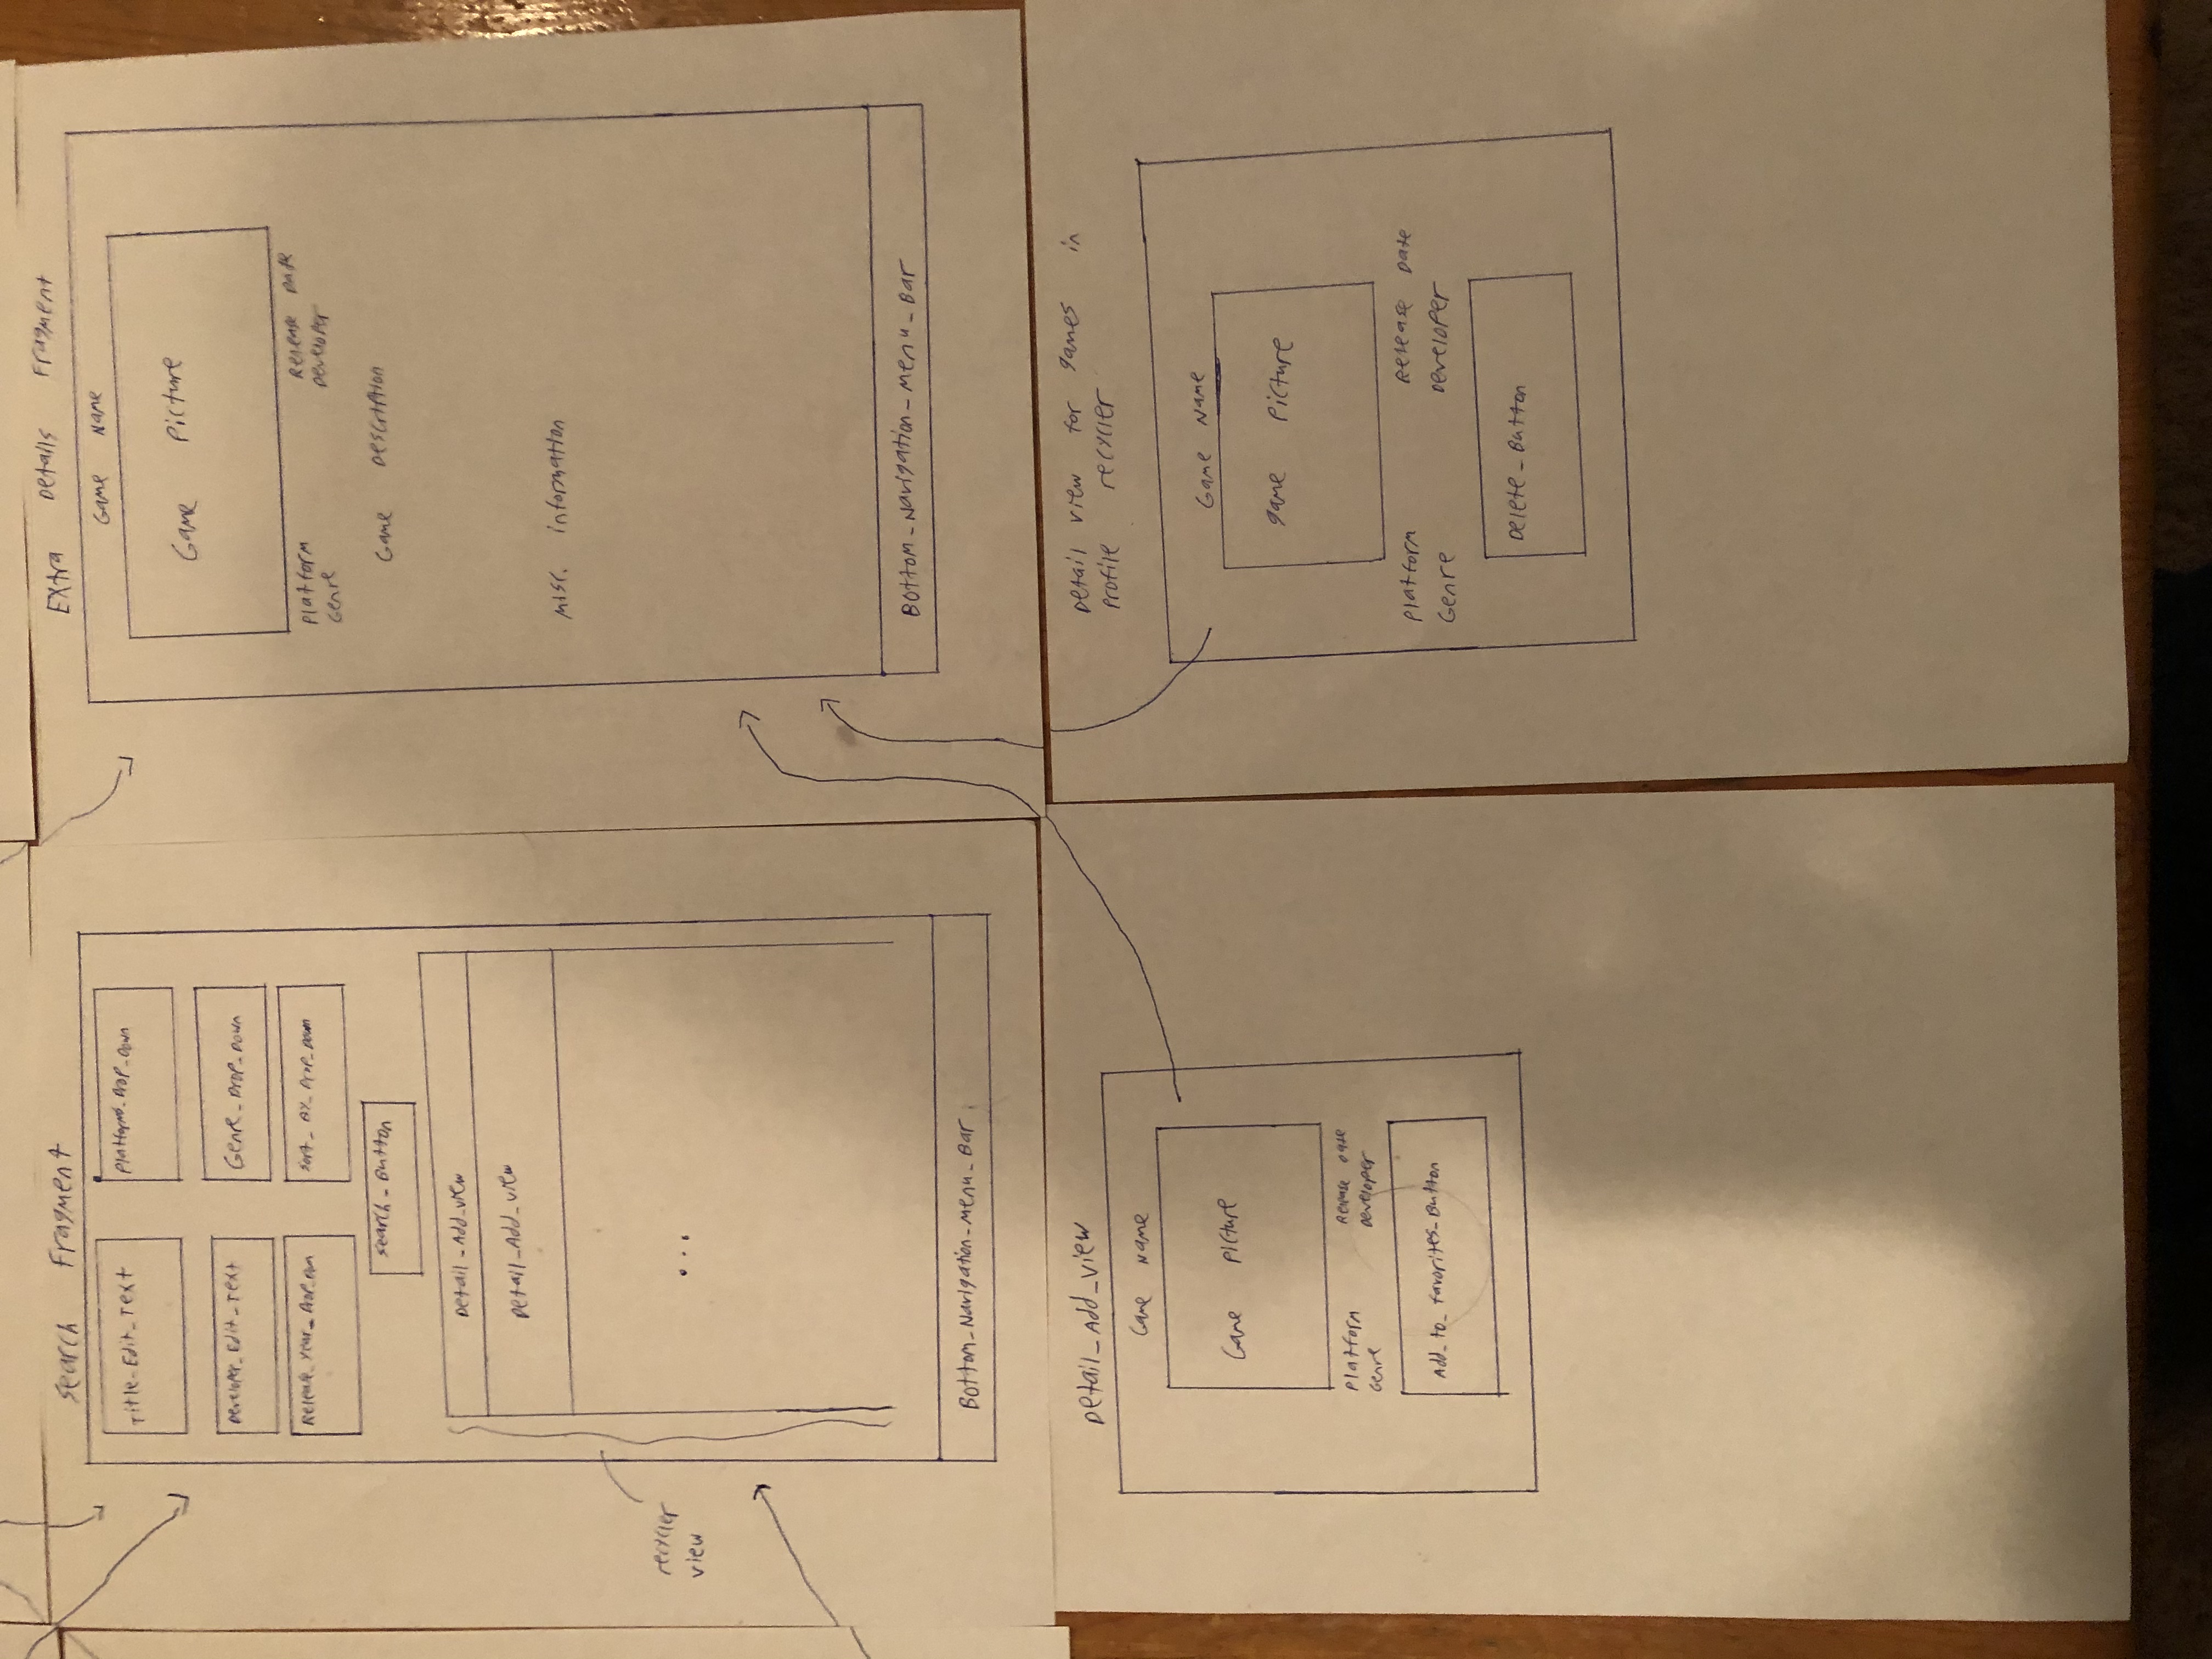 Search Fragment
Title_Edit_Text
Platforms_Drop_Down
Developer_Edit_Text
Genre_Drop_Down
Release_Year_Drop_Down
Sort_By_Drop_Down
Search_Button
Detail_Add_View
Detail_Add_View
...
recycler
view
Bottom_Navigation_Menu_Bar
Extra Details Fragment
Game Name
Game Picture
Platform
Genre
Release Date
Developer
Game Description
Misc. information
Bottom_Navigation_Menu_Bar
Detail_Add_View
Game Name
Game Picture
Platform
Genre
Release Date
Developer
Add_to_Favorites_Button
Detail view for games in
Profile recycler
Game Name
game Picture
Platform
Genre
Release Date
Developer
Delete_Button